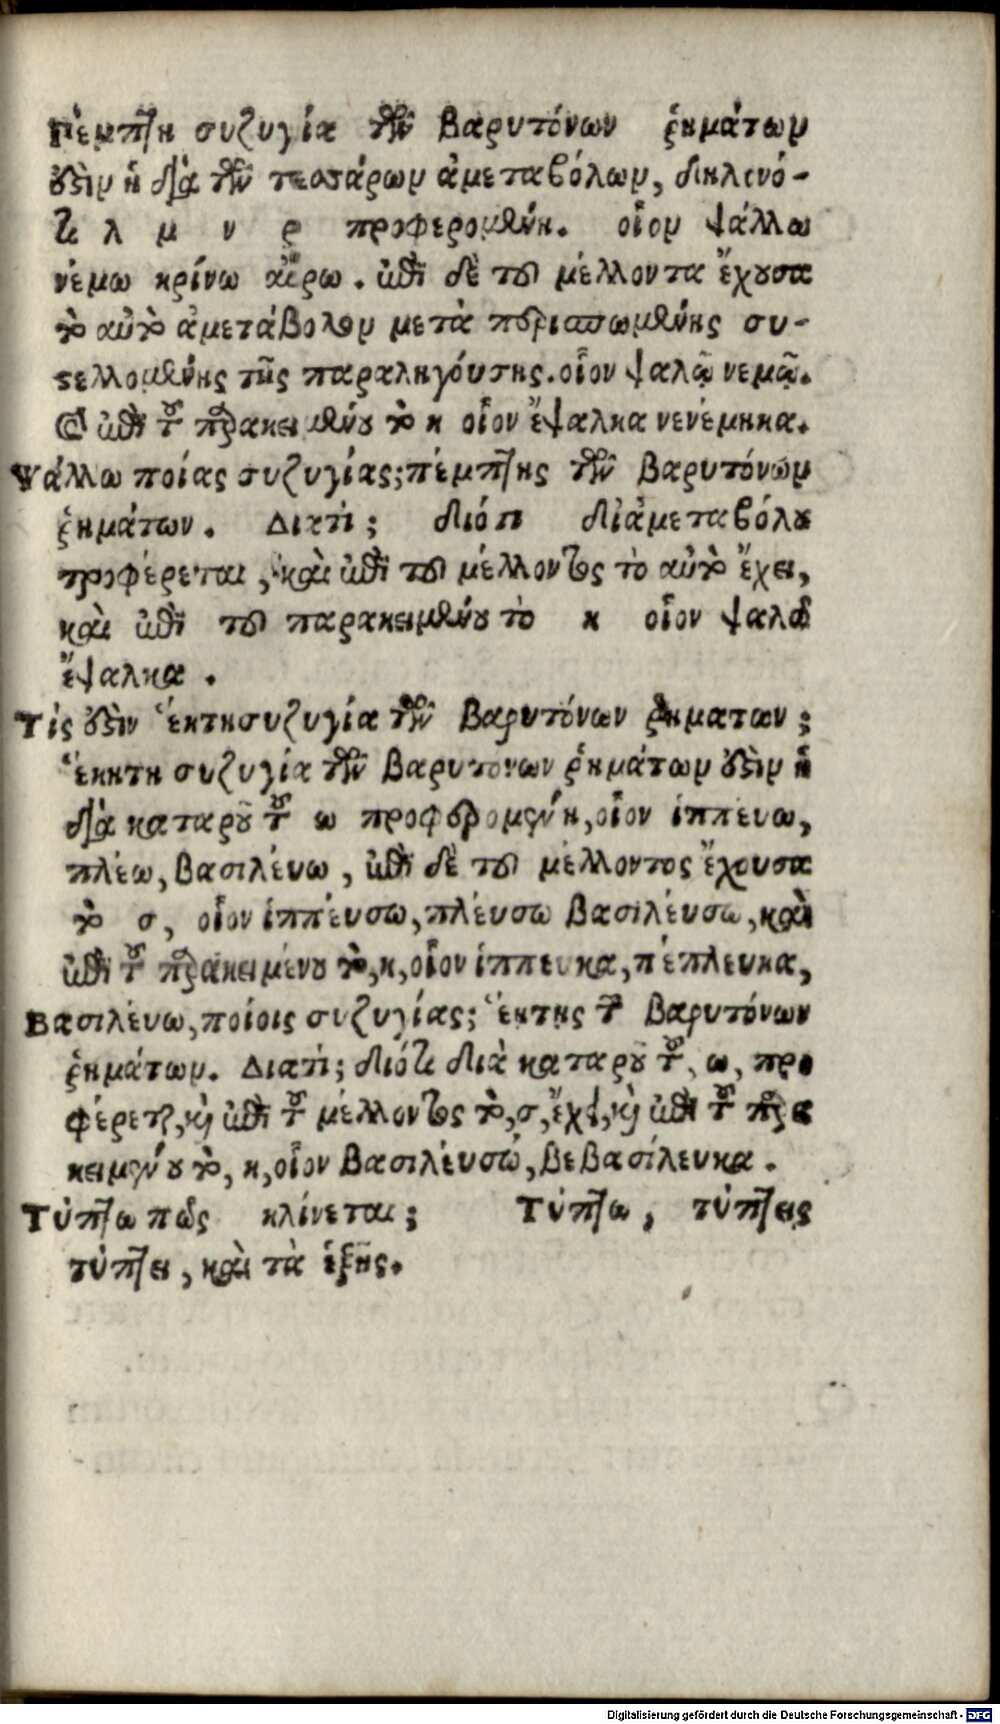 Πέμπτη συζυγία τῶν βαρυτόνων ῥημάτων
ἐστὶν ἡ διὰ τῶν τεσσάρων ἀμεταβόλων, δηλονό-
τι λ μ ν ρ προφερομένη. οἷον ψάλλω
νέμω κρίνω αἴρω. ἐπὶ δὲ τοῦ μέλλοντα ἔχουσα
τὸ αὐτὸ ἀμετάβολον μετὰ περισπωμένης συ-
στελλομένης τῆς παραληγούσης. οἷον ψαλῶ νεμῶ.
καὶ ἐπὶ τοῦ παρακειμένου τὸ κ οἷον ἔψαλκα νενέμηκα.
Ψάλλω ποίας συζυγίας; πέμπτης τῶν βαρυτόνων
ῥημάτων. Διατί; διότι δι' ἀμεταβόλου
προφέρεται, καὶ ἐπὶ τοῦ μέλλοντος τὸ αὐτὸ ἔχει,
καὶ ἐπὶ τοῦ παρακειμένου τὸ κ οἷον ψαλῶ
ἔψαλκα.
Τίς ἐστὶν ἕκτη συζυγία τῶν βαρυτόνων ῥημάτων;
ἕκητη συζυγία τῶν βαρυτόνων ῥημάτων ἐστὶν ἡ
διὰ καταροῦ τοῦ ω προφερομένη, οἷον ἱππεύω,
πλέω, βασιλέυω, ἐπὶ δὲ τοῦ μέλλοντος ἔχουσα
τὸ σ, οἷον ἱππέυσω, πλέυσω βασιλέυσω, καὶ
ἐπὶ τοῦ παρακειμένου τὸ, κ, οἷον ἵππευκα, πέπλευκα,
Βασιλέυω, ποίοις συζυγίας; ἕκτης τῶν βαρυτόνων
ῥημάτων. Διατί; διότι διὰ καταροῦ τοῦ, ω, προ
φέρεται, καὶ ἐπὶ τοῦ μέλλοντος τὸ, σ, ἔχει, καὶ ἐπὶ τοῦ παρα
κειμένου τὸ, κ, οἷον βασιλέυσω, βεβασίλευκα.
Τύπτω πῶς κλίνεται; Τύπτω, τύπτεις
τύπτει, καὶ τὰ ἑξῆς.
Digitalisierung gefördert durch die Deutsche Forschungsgemeinschaft - DFG